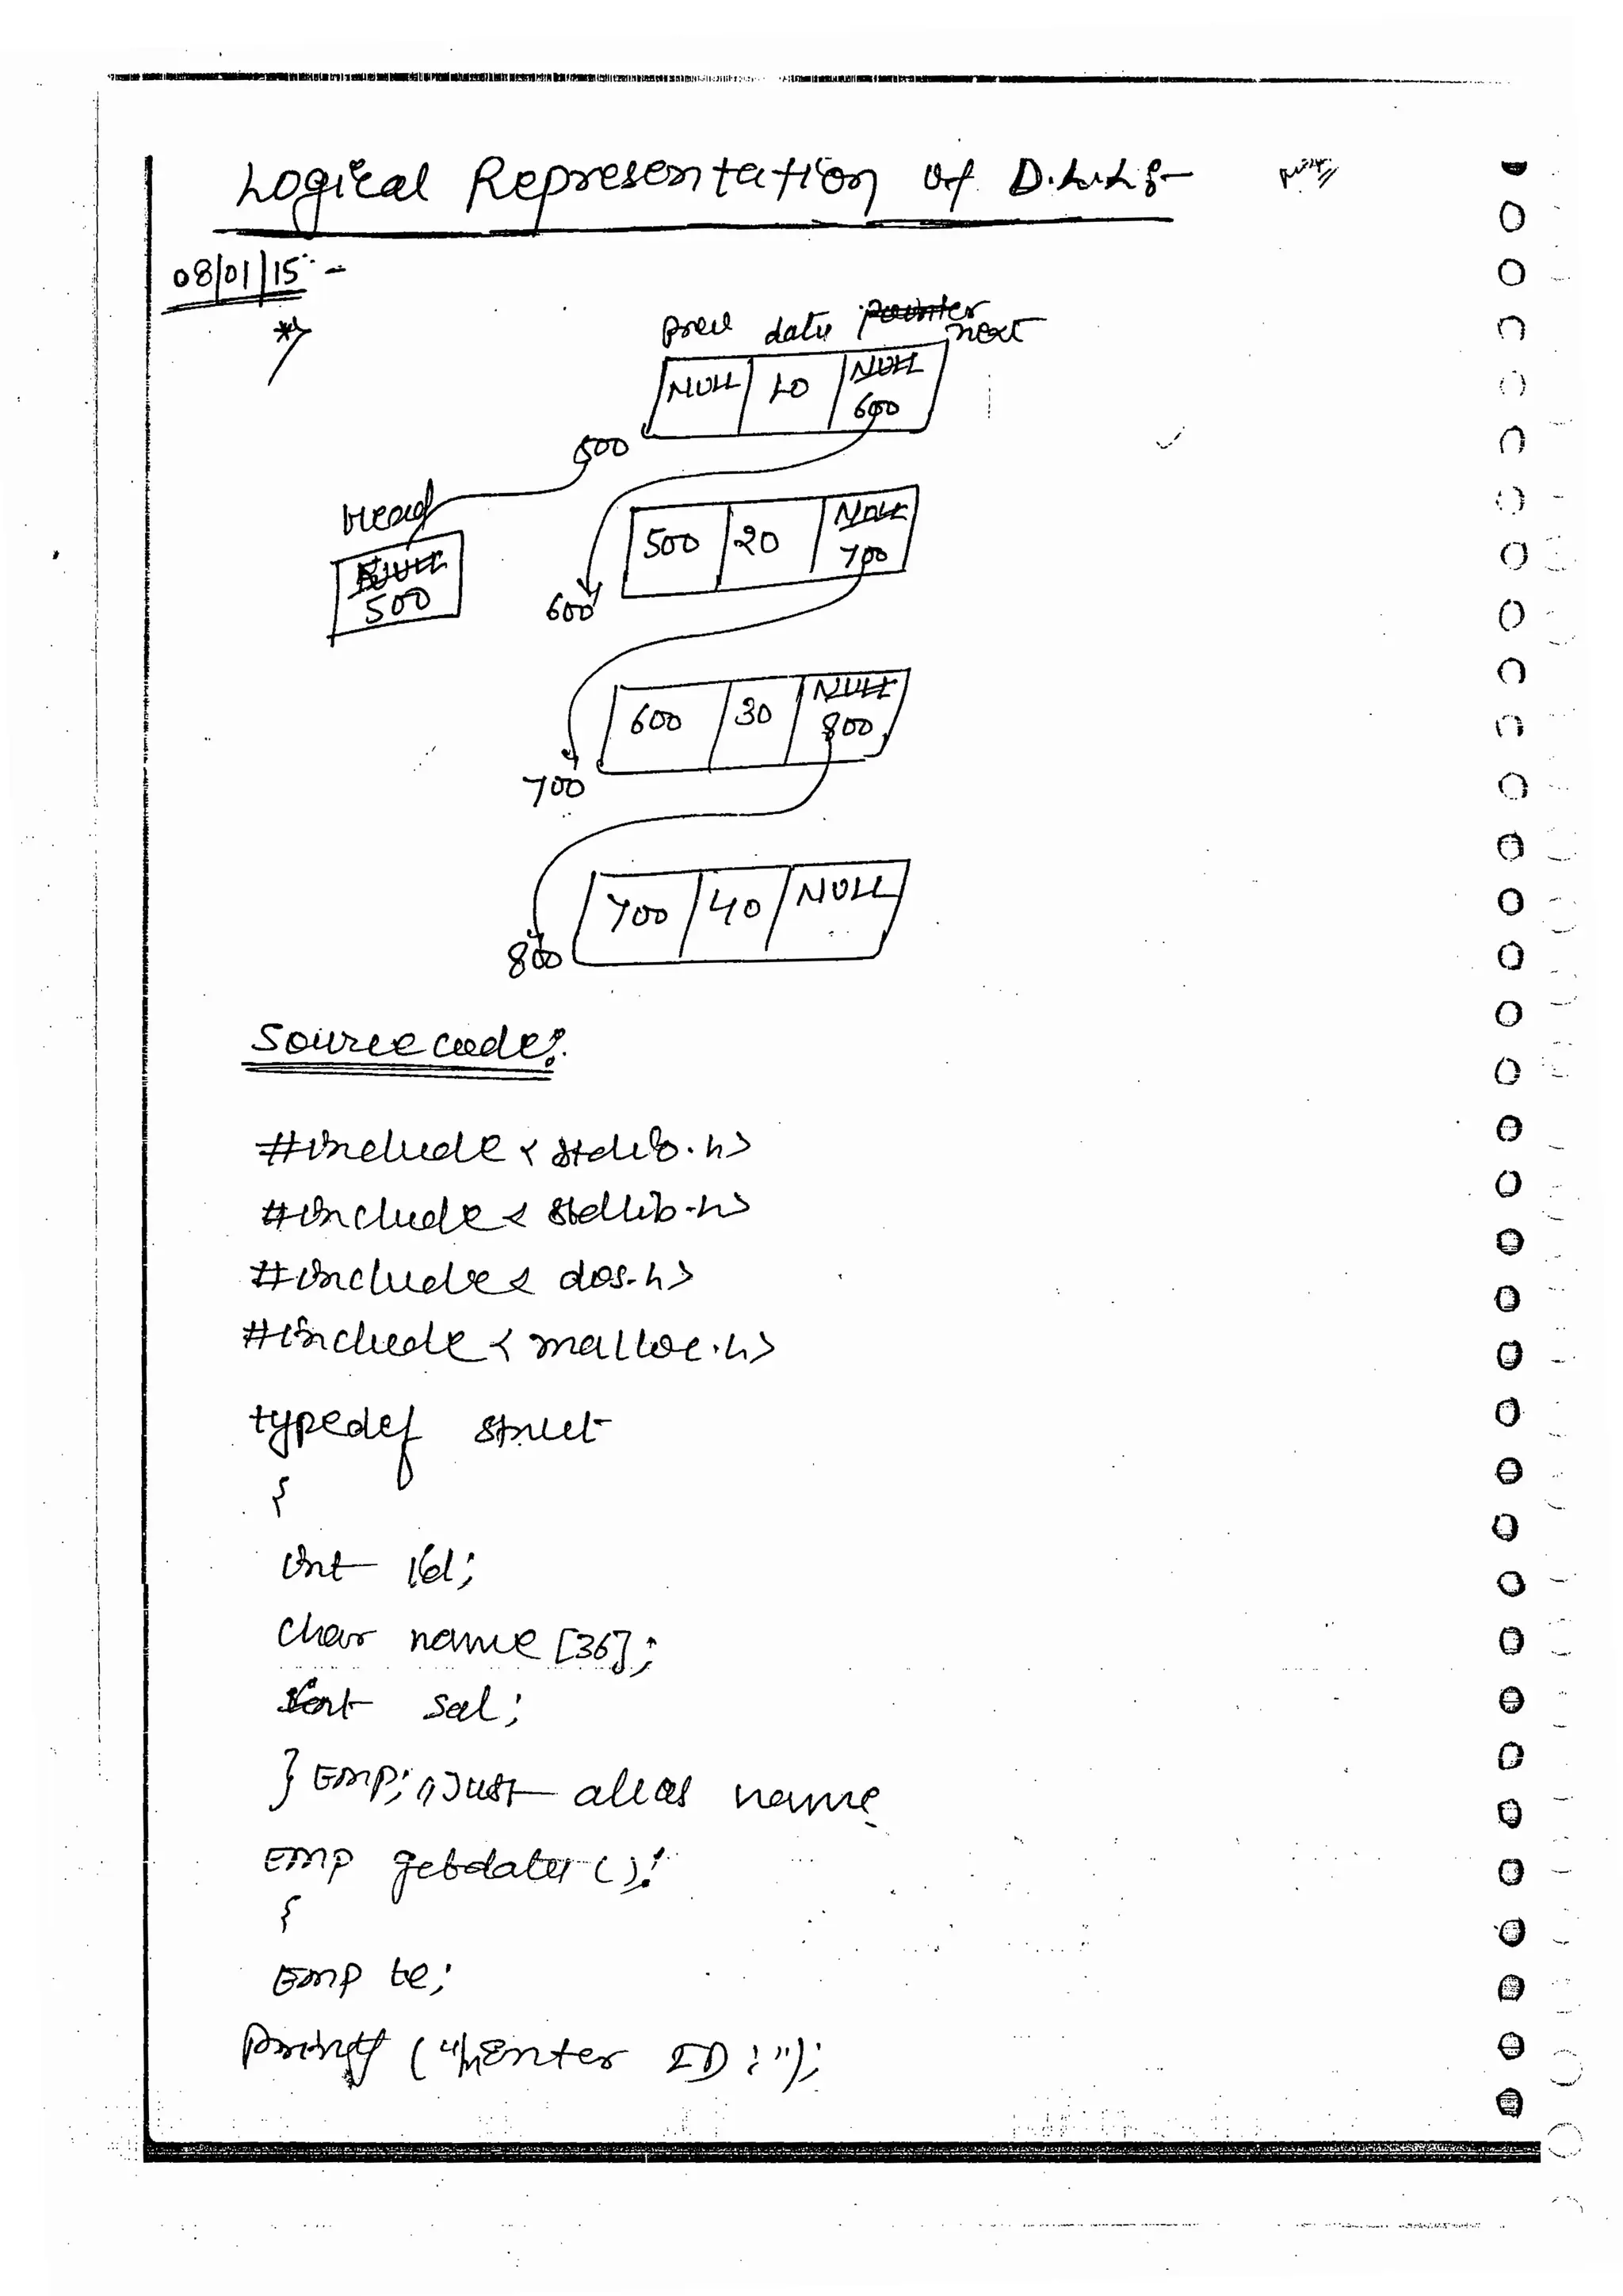 Logical Representation of D.L.L :-
08/01/15 -
prev data pointer next
NULL 10 NULL 600
500
Head
NULL 500
500 20 NULL 700
600
600 30 NULL 800
700
700 40 NULL
800
Source code :
#include < stdio.h>
#include < stdlib.h>
#include < dos.h>
#include < malloc.h>
typedef struct
{
int id;
char name [36];
int sal;
} Emp; // Just alias name
Emp getdata ();
{
Emp te;
printf ("\nEnter ID : ");